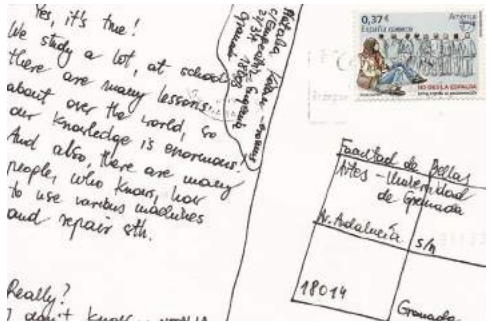 Yes, it's true!
We study a lot, at school
there are many lessons
about over the world, so
our knowledge is enormous!
And also, there are many
people, who knows, how
to use various machines
and repair sth.
Really?
I don't know
18008
Granada
0,37€
España correos
América
NO DES LA ESPALDA
Facultad de Bellas
Artes - Universidad
de Granada
Av. Andalucía s/n
18014
Granada